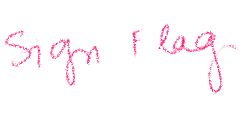 Sign Flag